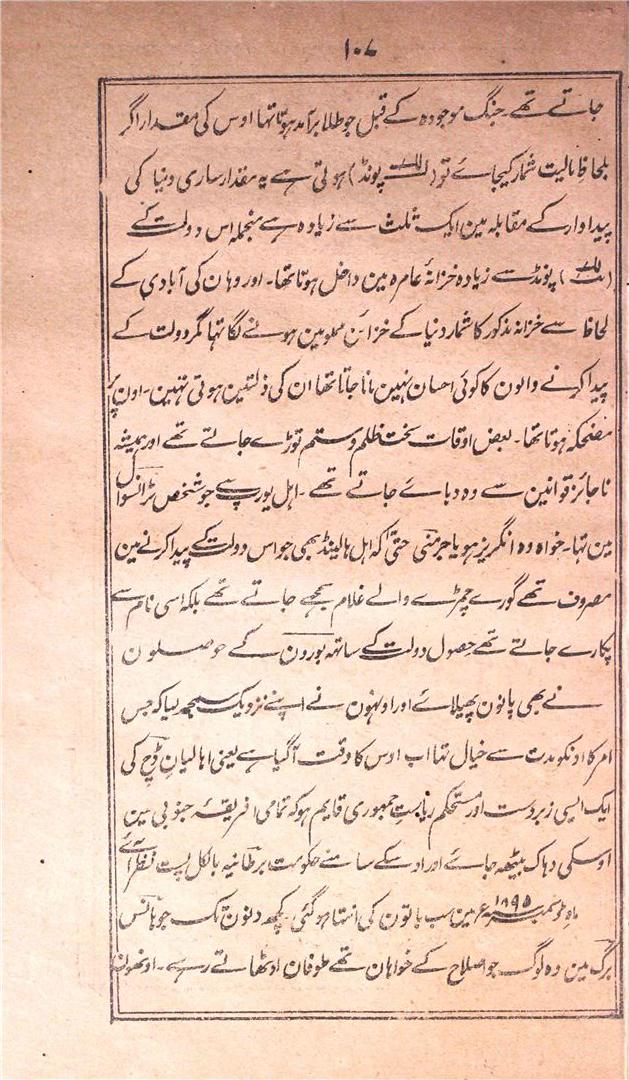 ۱۰۷
جاتے تھے۔ جنگ موجودہ کے قبل جو طلا برآمد ہوتا تہا اوس کی مقدار اگر
بلحاظ مالیت شمار کیجاے تو ( پونڈ) ہوتی ہے یہ مقدار ساری دنیا کی
پیداوار کے مقابلہ مین ایک ثلث سے زیادہ ہے منجملہ اس دولت کے
( ) پونڈ سے زیادہ خزانۂ عامرہ مین داخل ہوتا تھا۔ اور وہان کی آبادی کے
لحاظ سے خزانہ مذکور کا شمار دنیا کے خزائن مملو مین ہونے لگا تہا مگر دولت کے
پیدا کرنے والون کا کوئی احسان نہین مانا جاتا تھا ان کی ذلتین ہوتی تہین۔ اون پر
مضحکہ ہوتا تھا۔ بعض اوقات سخت ظلم و ستم توڑے جاتے تھے اور ہمیشہ
ناجائز قوانین سے وہ دباے جاتے تھے۔ اہل یورپ سے جو شخص ٹرانسوال
مین تہا۔ خواہ وہ انگریز ہو یا جرمنی حتیٰ اکہ اہل ہالینڈ بھی جو اس دولت کے پیدا کرنے مین
مصروف تھے گورے چمڑے والے غلام سمجہے جاتے تھے بلکہ اسی نام سے
پکارے جاتے تھے حصول دولت کے ساتھہ بورون کے حوصلون
نے بھی پانون پھیلائے اور اونہون نے اپنے نزدیک سمجھہ لیا کہ جس
امر کا اونکو مدت سے خیال تہا اب اوس کا وقت آگیا ہے یعنی اہالیان ڈچ کی
ایک ایسی زبردست اور مستحکم ریاست جمہوری قایم ہو کہ تمامی افریقۂ جنوبی مین
اوسکی دہاک بیٹھہ جائے اور اوسکے سامنے حکومت برطانیہ بالکل پست نظر آئے
ماہ دسمبر ۱۸۹۵ء مین سب باتون کی انتہا ہوگئی۔ کچھہ دنون تک جوہانس
برگ مین وہ لوگ جو اصلاح کے خواہان تھے طوفان اوٹھاتے رہے۔ اونھون